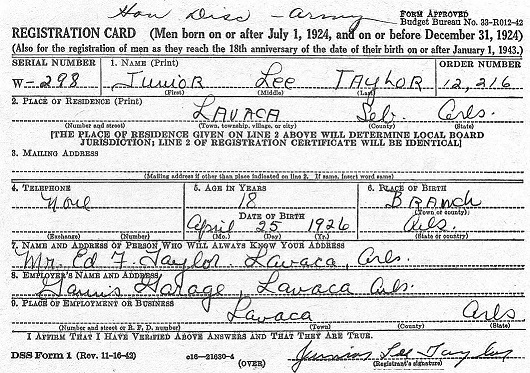 Hon Disc - Army
FORM APPROVED
Budget Bureau No. 33-R012-42
REGISTRATION CARD (Men born on or after July 1, 1924, and on or before December 31, 1924)
(Also for the registration of men as they reach the 18th anniversary of the date of their birth on or after January 1, 1943.)
SERIAL NUMBER 1. NAME (Print) ORDER NUMBER
W-298 JUNIOR LEE TAYLOR 12,216
(First) (Middle) (Last)
2. PLACE OF RESIDENCE (Print)
LAVACA Seb. Arks.
(Number and street) (Town, township, village, or city) (County) (State)
[THE PLACE OF RESIDENCE GIVEN ON LINE 2 ABOVE WILL DETERMINE LOCAL BOARD
JURISDICTION; LINE 2 OF REGISTRATION CERTIFICATE WILL BE IDENTICAL]
3. MAILING ADDRESS
[Mailing address if other than place indicated on line 2. If same, insert word same]
4. TELEPHONE 5. AGE IN YEARS 6. PLACE OF BIRTH
None 18 BRANCH
DATE OF BIRTH (Town or county)
April 25 1926 Arks.
(Exchange) (Number) (Mo.) (Day) (Yr.) (State or country)
7. NAME AND ADDRESS OF PERSON WHO WILL ALWAYS KNOW YOUR ADDRESS
Mr. Ed F. Taylor Lavaca, Arks.
8. EMPLOYER'S NAME AND ADDRESS
Garage, Lavaca Arks.
9. PLACE OF EMPLOYMENT OR BUSINESS
Lavaca Arks
(Number and street or R. F. D. number) (Town) (County) (State)
I AFFIRM THAT I HAVE VERIFIED ABOVE ANSWERS AND THAT THEY ARE TRUE.
DSS Form 1 (Rev. 11-16-42) e16-21630-4 Junior Lee Taylor
(OVER) (Registrant's signature)